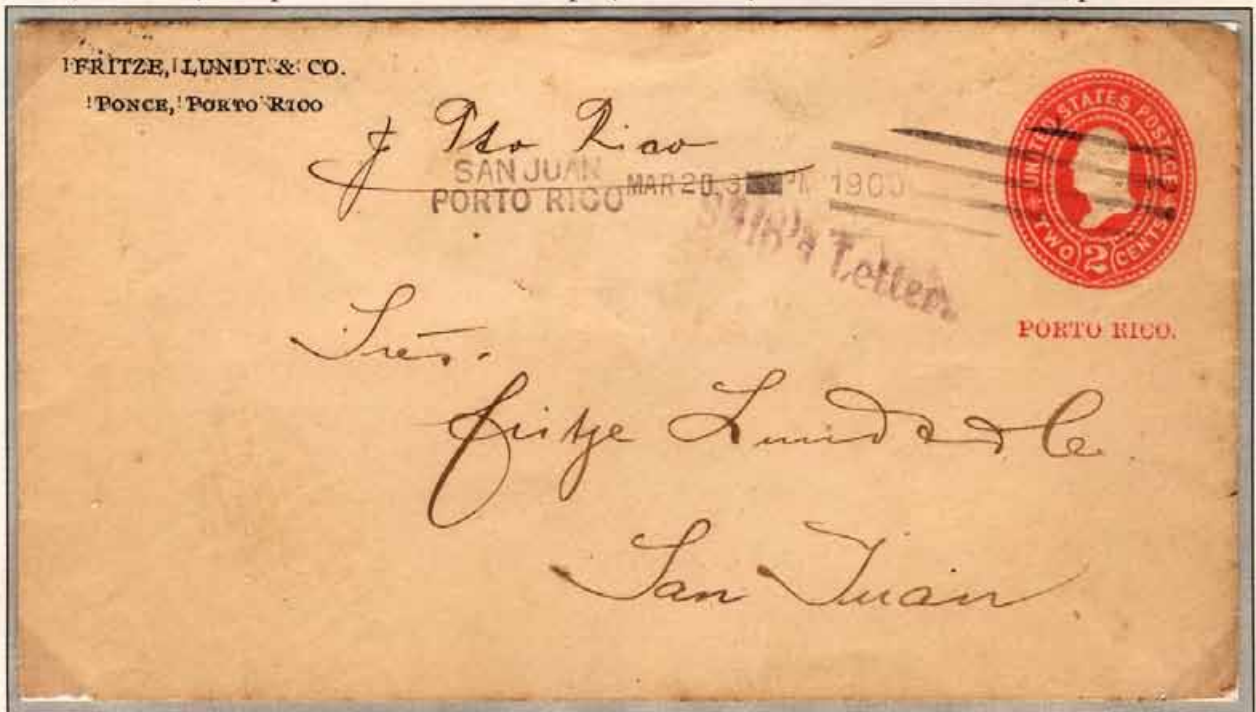 FRITZE, LUNDT & CO.
PONCE, PORTO RICO
Pto Rico
SAN JUAN
PORTO RICO
MAR 20, 3 PM 1900
Ship's Letter.
UNITED STATES POSTAGE
TWO 2 CENTS
PORTO RICO.
Sres.
Fritze Lundt & Co.
San Juan